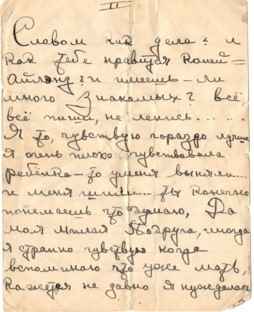 II
Словом как дела? и
как тебе нравится Коней=
Айланд? и имеешь-ли
много знакомых? всё
всё пиши, не ленись....
Я то, чувствую гораздо лучше
я очень плохо чувствовала
ребёнка-то у меня вынули...
и меня ... ты конечно
понимаешь что думаю, Да
моя милая подруга, иногда
я странно чувствую когда
вспоминаю что уже мать,
кажется не давно я нуждалась